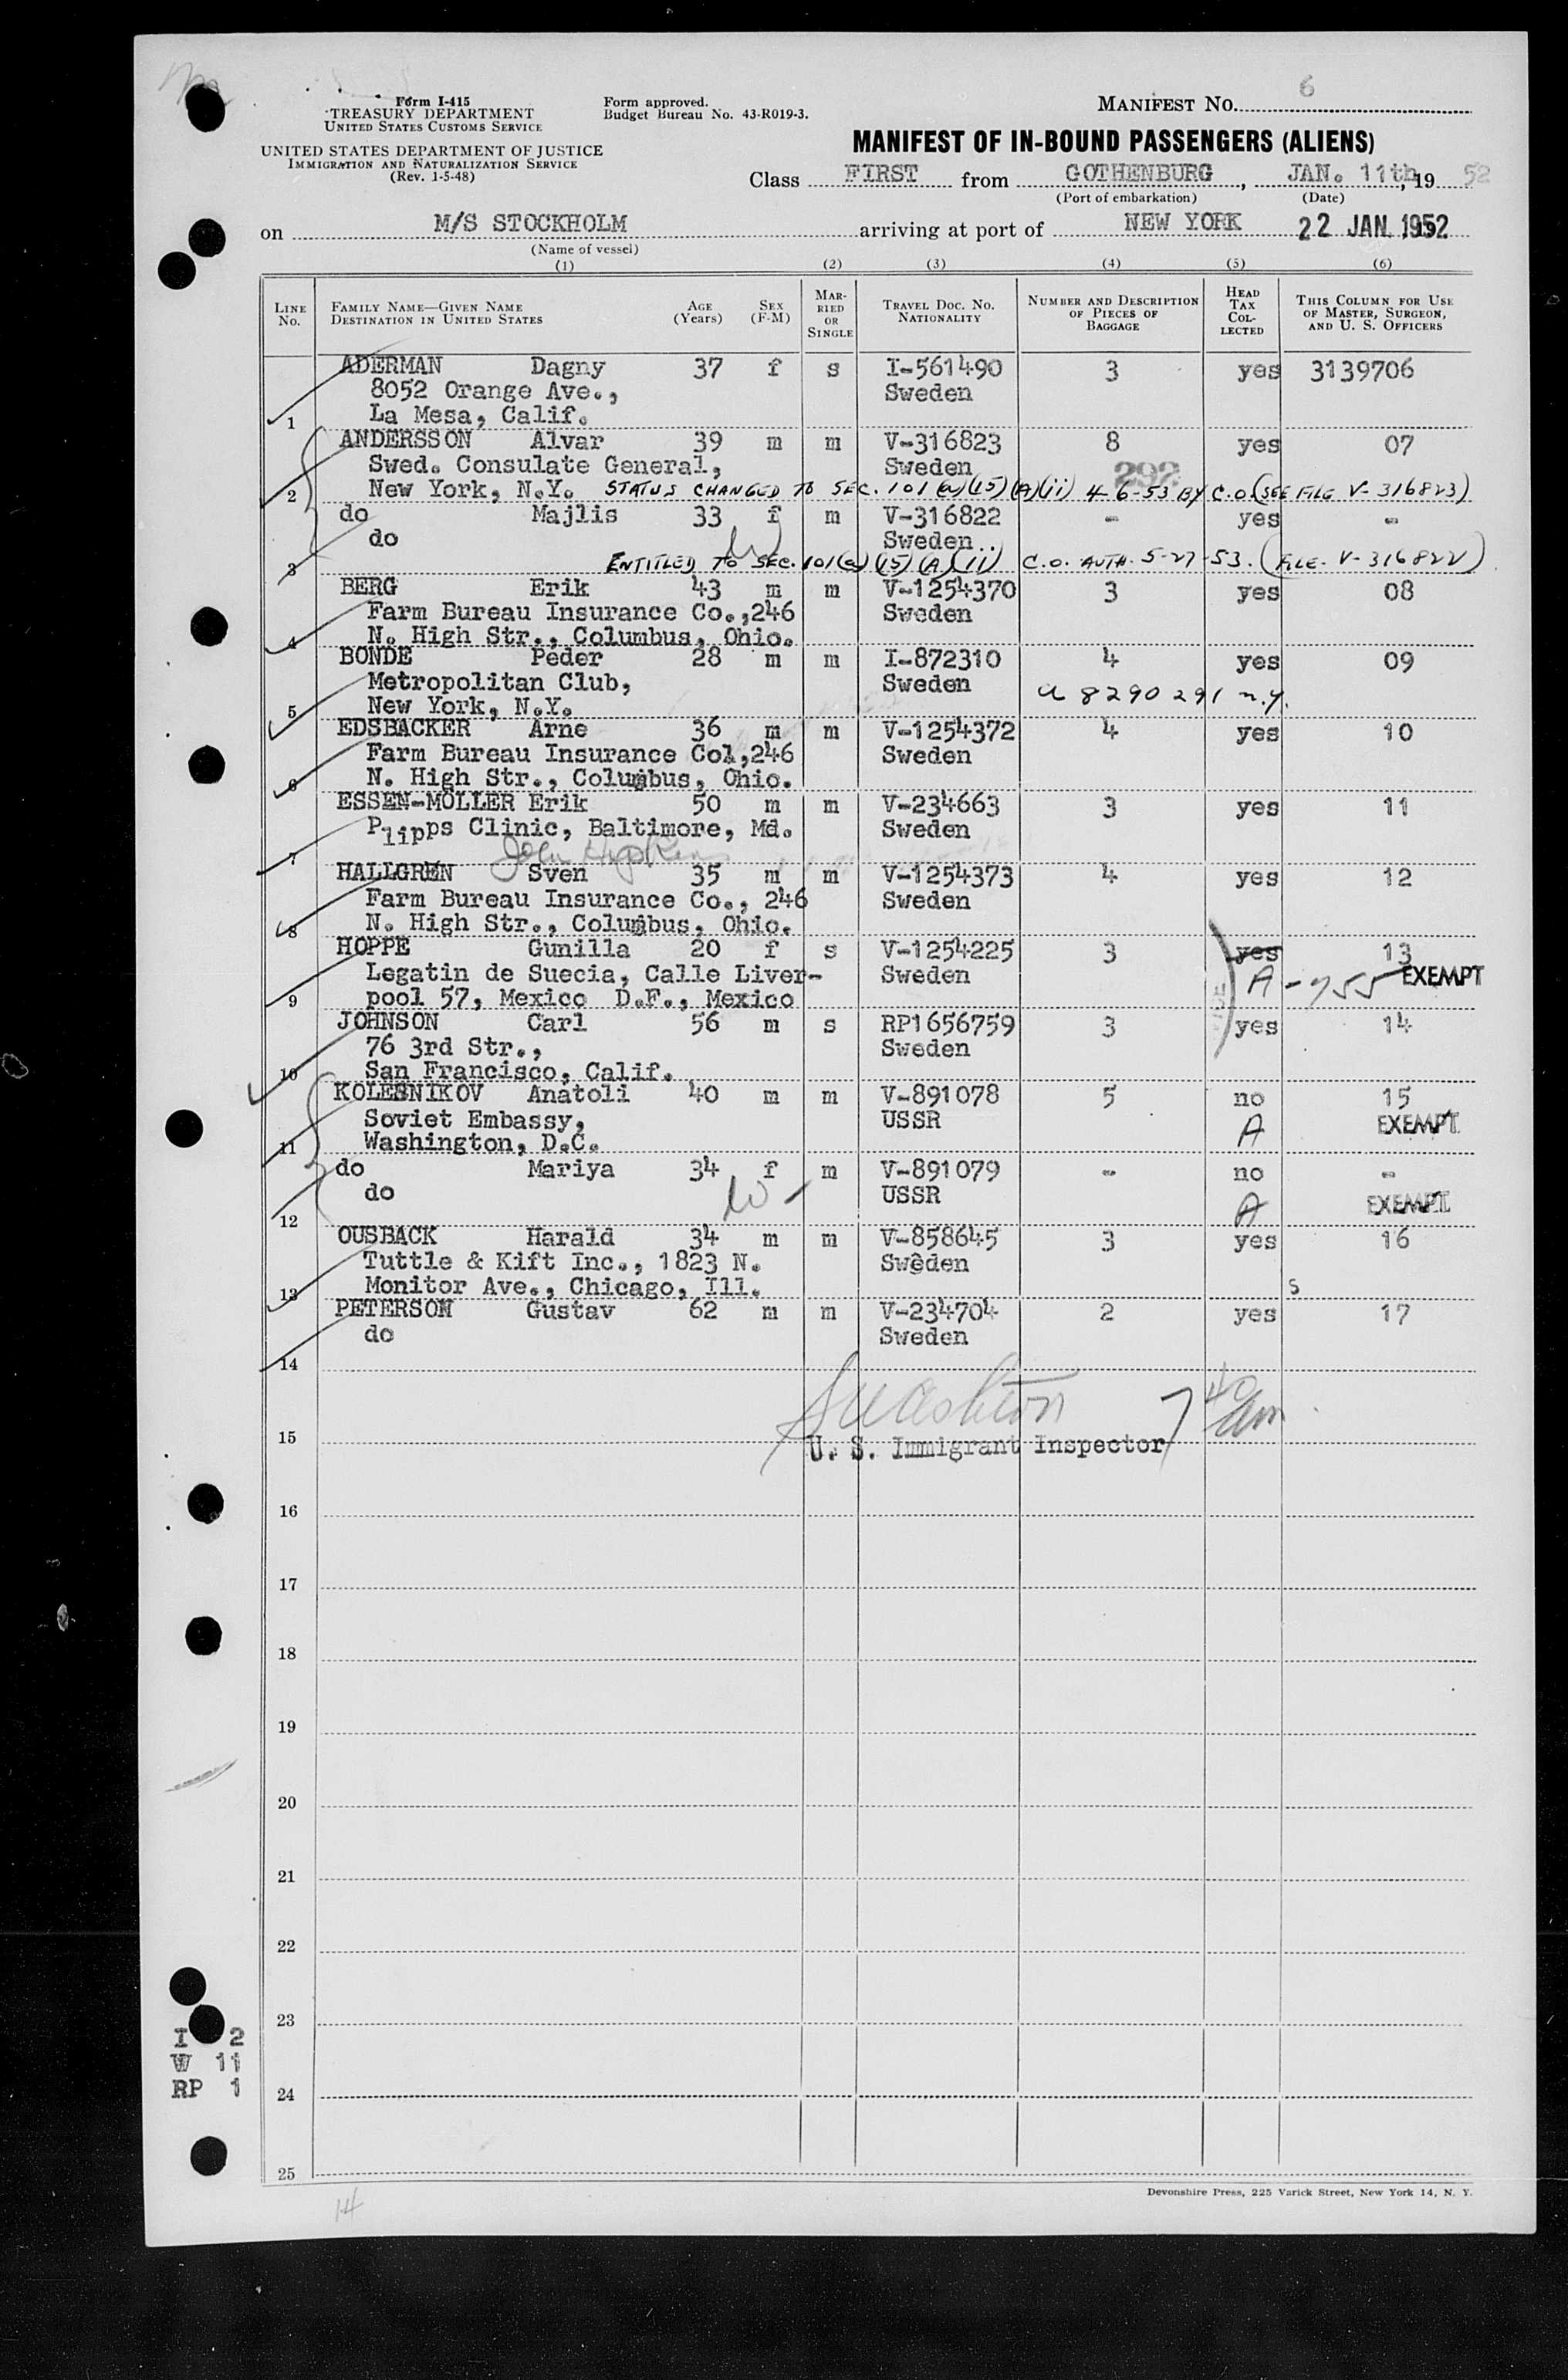 Form I-415
TREASURY DEPARTMENT
UNITED STATES CUSTOMS SERVICE
UNITED STATES DEPARTMENT OF JUSTICE
IMMIGRATION AND NATURALIZATION SERVICE
(Rev. 1-5-48)
Form approved.
Budget Bureau No. 43-R019-3.
MANIFEST NO. 6
MANIFEST OF IN-BOUND PASSENGERS (ALIENS)
Class FIRST from GOTHENBURG, JAN. 11th, 19 52
(Port of embarkation) (Date)
on M/S STOCKHOLM arriving at port of NEW YORK 22 JAN. 1952
(Name of vessel)
(1) (2) (3) (4) (5) (6)
LINE No. FAMILY NAME—GIVEN NAME DESTINATION IN UNITED STATES AGE (Years) SEX (F-M) MARRIED OR SINGLE TRAVEL DOC. NO. NATIONALITY NUMBER AND DESCRIPTION OF PIECES OF BAGGAGE HEAD TAX COLLECTED THIS COLUMN FOR USE OF MASTER, SURGEON, AND U. S. OFFICERS
ADERMAN Dagny 37 f s I-561490 3 yes 3139706
8052 Orange Ave., Sweden
1 La Mesa, Calif.
ANDERSSON Alvar 39 m m V-316823 8 yes 07
Swed. Consulate General, Sweden 292
2 New York, N.Y. STATUS CHANGED TO SEC. 101 (a)(15)(A)(ii) 4-6-53 BY C.O. (SEE FILE V-316823)
do Majlis 33 f m V-316822 - yes -
do W Sweden
3 ENTITLED TO SEC. 101(a)(15)(A)(ii) C.O. AUTH. 5-27-53. (FILE. V-316822)
BERG Erik 43 m m V-1254370 3 yes 08
Farm Bureau Insurance Co.,246 Sweden
4 N. High Str., Columbus, Ohio.
BONDE Peder 28 m m I-872310 4 yes 09
Metropolitan Club, Sweden a 8290291 n.y.
5 New York, N.Y.
EDSBACKER Arne 36 m m V-1254372 4 yes 10
Farm Bureau Insurance Col,246 Sweden
6 N. High Str., Columbus, Ohio.
ESSEN-MOLLER Erik 50 m m V-234663 3 yes 11
Plipps Clinic, Baltimore, Md. Sweden
7 John Hopkins
HALLGREN Sven 35 m m V-1254373 4 yes 12
Farm Bureau Insurance Co., 246 Sweden
8 N. High Str., Columbus, Ohio.
HOPPE Gunilla 20 f s V-1254225 3 yes 13
Legatin de Suecia, Calle Liver- Sweden A-755 EXEMPT
9 pool 57, Mexico D.F., Mexico
JOHNSON Carl 56 m s RP1656759 3 yes 14
76 3rd Str., Sweden
10 San Francisco, Calif.
KOLESNIKOV Anatoli 40 m m V-891078 5 no 15
Soviet Embassy, USSR A EXEMPT
11 Washington, D.C.
do Mariya 34 f m V-891079 - no -
do W - USSR A EXEMPT
12
OUSBACK Harald 34 m m V-858645 3 yes 16
Tuttle & Kift Inc., 1823 N. Sweden
13 Monitor Ave., Chicago, Ill. s
PETERSON Gustav 62 m m V-234704 2 yes 17
do Sweden
14
7 40 am
15 U. S. Immigrant Inspector
16
17
18
19
20
21
22
23
I 2
W 11
RP 1
24
25
Devonshire Press, 225 Varick Street, New York 14, N. Y.
14